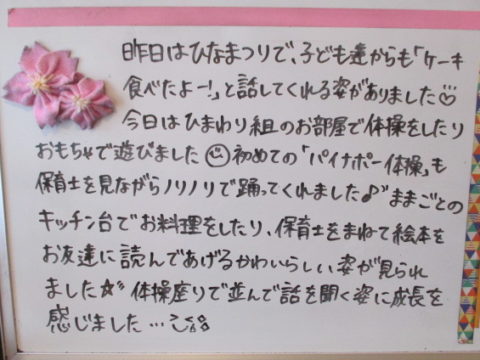 昨日はひなまつりで、子ども達からも「ケーキ
食べたよー!」と話してくれる姿がありました♡
今日はひまわり組のお部屋で体操をしたり
おもちゃで遊びました☺初めての「パイナポー体操」も
保育士を見ながらノリノリで踊ってくれました♪ままごとの
キッチン台でお料理をしたり、保育士をまねて絵本を
お友達に読んであげるかわいらしい姿が見られ
ました☆体操座りで並んで話を聞く姿に成長を
感じました…